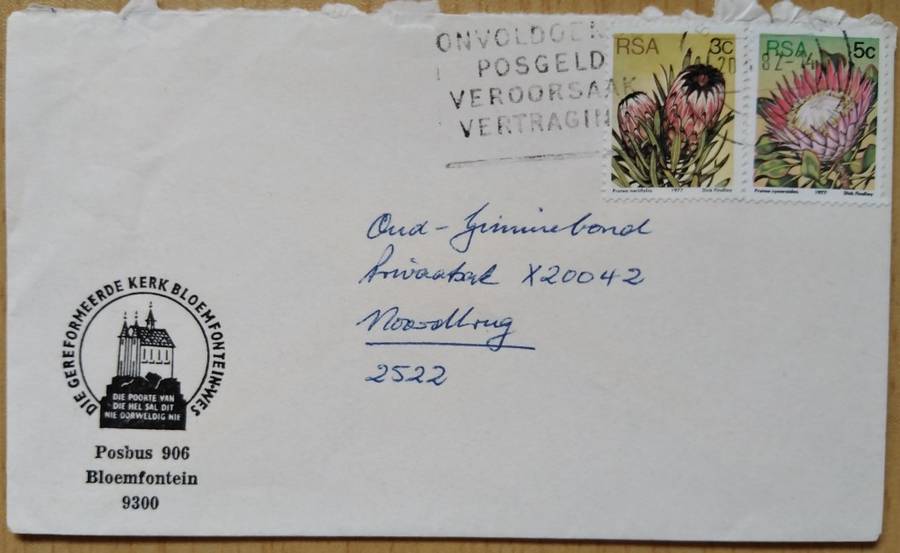 ONVOLDOEN
POSGELD
VEROORSAAK
VERTRAGING
RSA 3c
Protea neriifolia 1977 Dick Findlay
RSA 5c
Protea cynaroides 1977 Dick Findlay
Oud-Giminiebond
Privaatsak X20042
Noordbrug
2522
DIE GEREFORMEERDE KERK BLOEMFONTEIN-WES
DIE POORTE VAN
DIE HEL SAL DIT
NIE OORWELDIG NIE
Posbus 906
Bloemfontein
9300